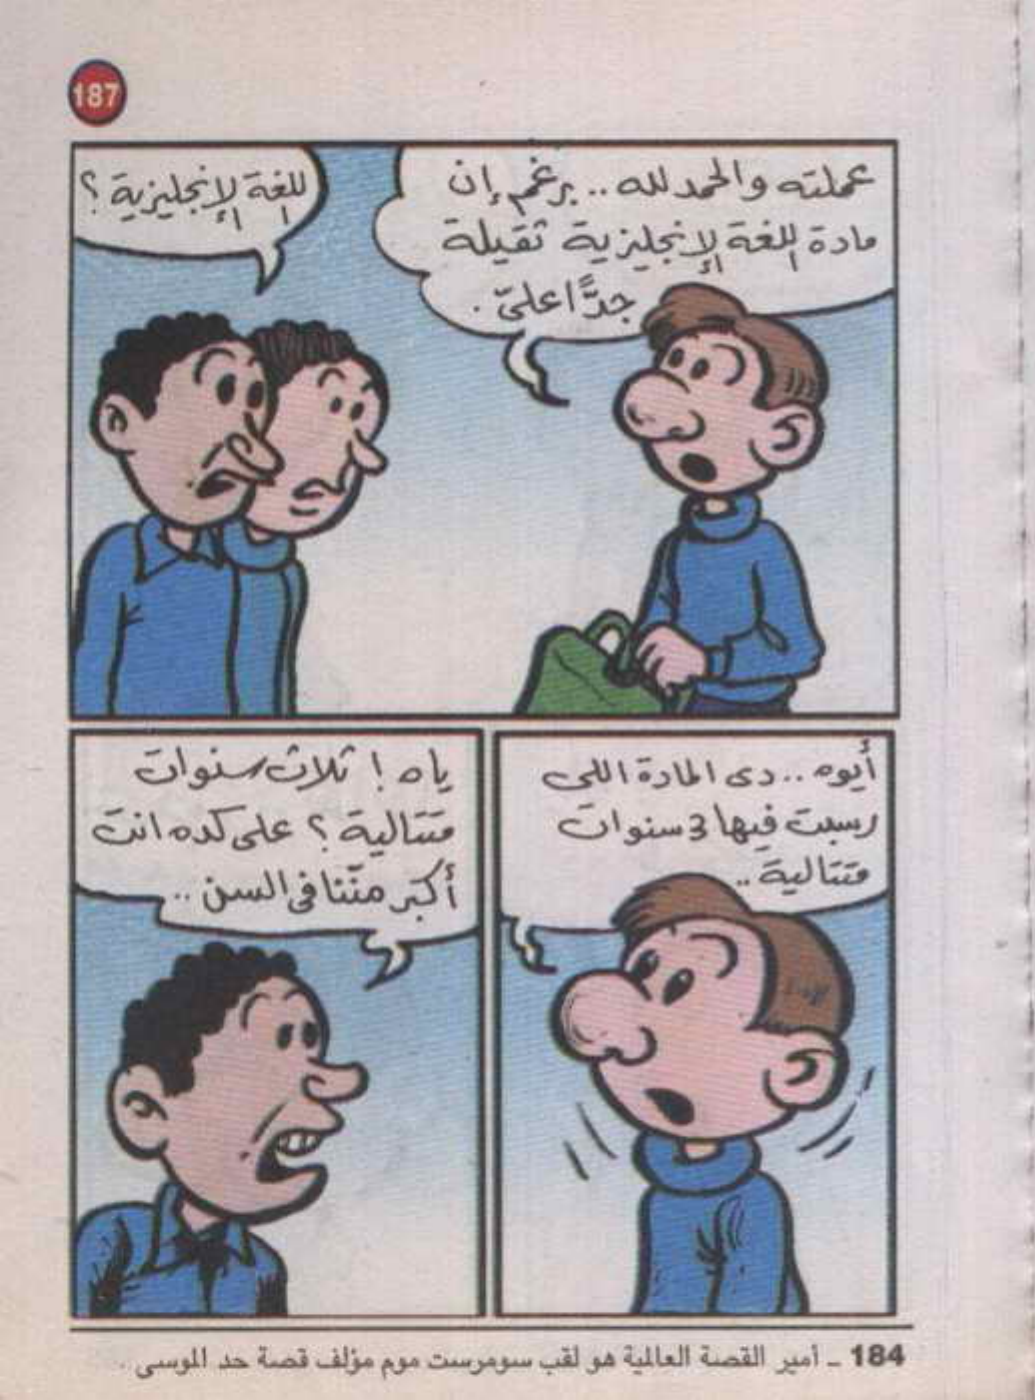 187
عملته والحمد لله .. برغم إن
مادة اللغة الإنجليزية ثقيلة
جدًّا علىّ .
اللغة الإنجليزية ؟
أيوه .. دى المادة اللى
رسبت فيها 3 سنوات
متتالية ..
ياه ! ثلاث سنوات
متتالية ؟ على كده انت
أكبر منّنا فى السن ..
184 ـ أمير القصة العالمية هو لقب سومرست موم مؤلف قصة حد الموسى .